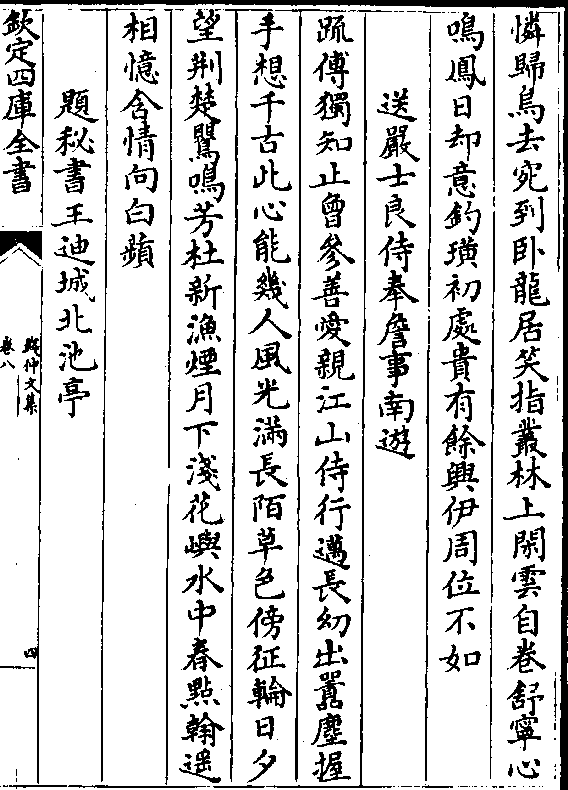 憐歸鳥去宛到卧龍居笑指叢林上閑雲自卷舒寧心
鳴鳳日却意釣璜初處貴有餘興伊周位不如
送嚴士良侍奉詹事南遊
䟽傅獨知止曾參善愛親江山侍行邁長幼出囂塵握
手想千古此心能幾人風光滿長陌草色傍征輪日夕
望荆楚鶯鳴芳杜新漁煙月下淺花嶼水中春點翰遥
相憶含情向白蘋
題秘書王迪城北池亭
欽定四庫全書
錢仲文集
卷八
四